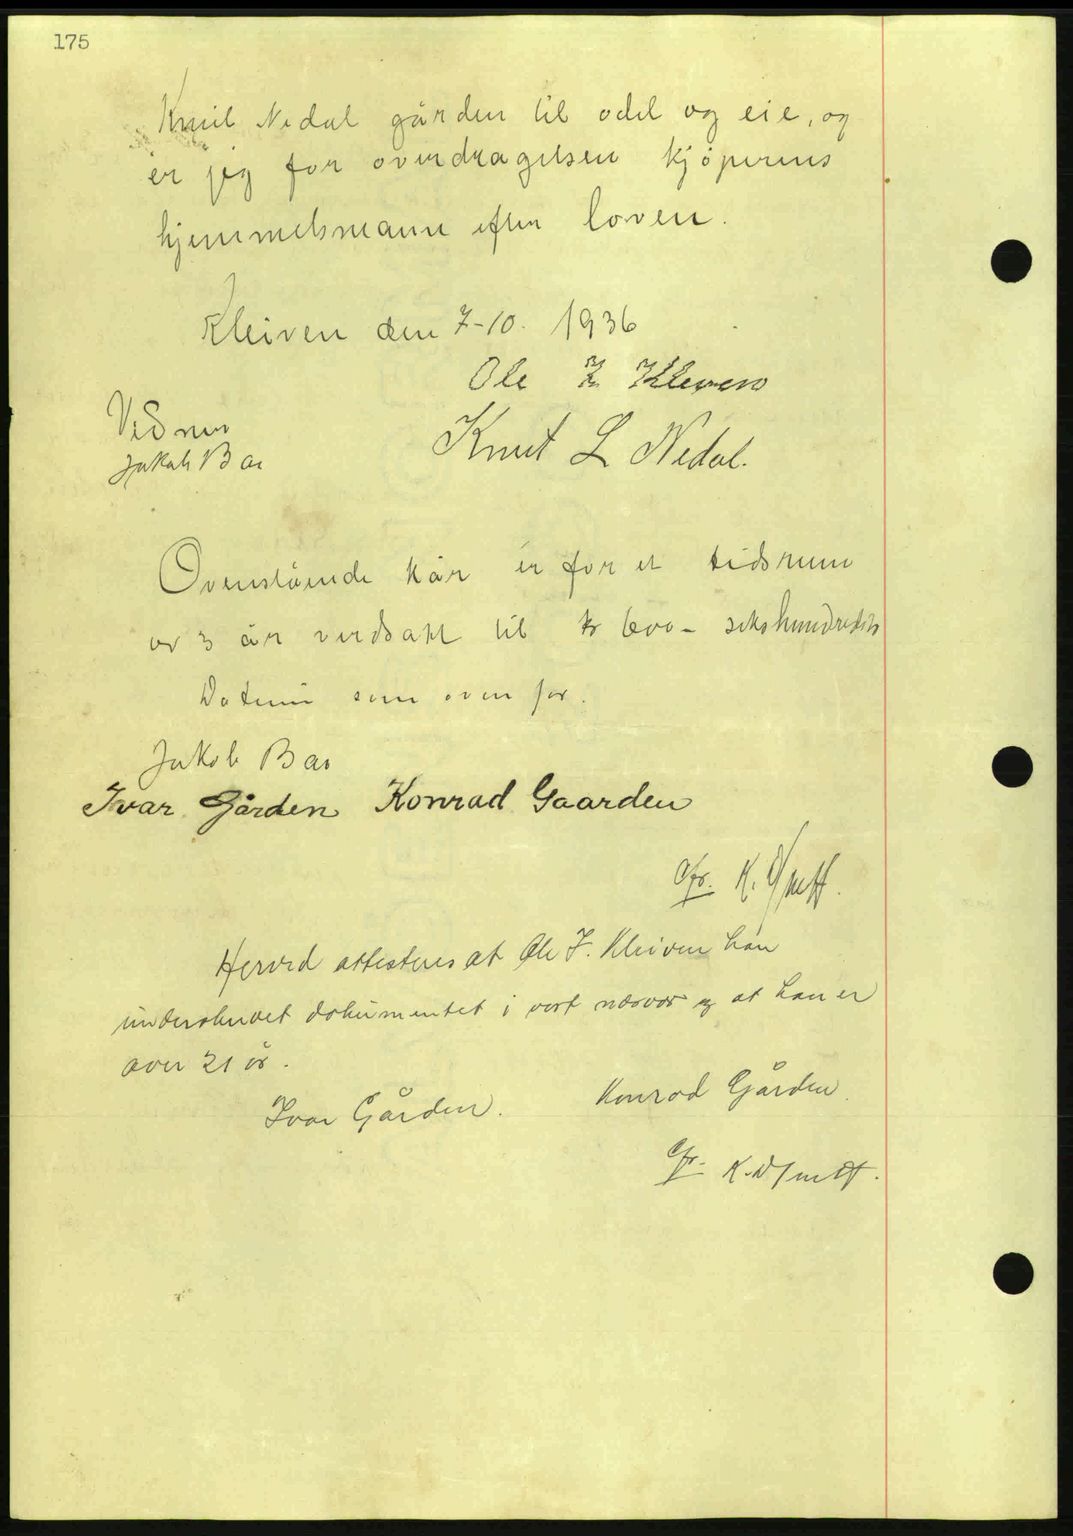 175
Knut Nedal gården til odel og eie, og
er jeg for overdragelsen kjøperens
hjemmelsmann efter loven.
Kleiven den 7-10. 1936
Ole I Kleven
Vidner
Knut L Nedal.
Jakob Bae
Ovenstående kår er for et tidsrum
av 5 år verdsatt til kr 600 - sekshundrede
Datum som oven for.
Jakob Bae
Ivar Gården Konrad Gaarden
K.
Herved attesteres at Ole I. Kleiven har
underskrevet dokumentet i vort nærvær og at han er
over 21 år.
Ivar Gården. Konrad Gården.
K.